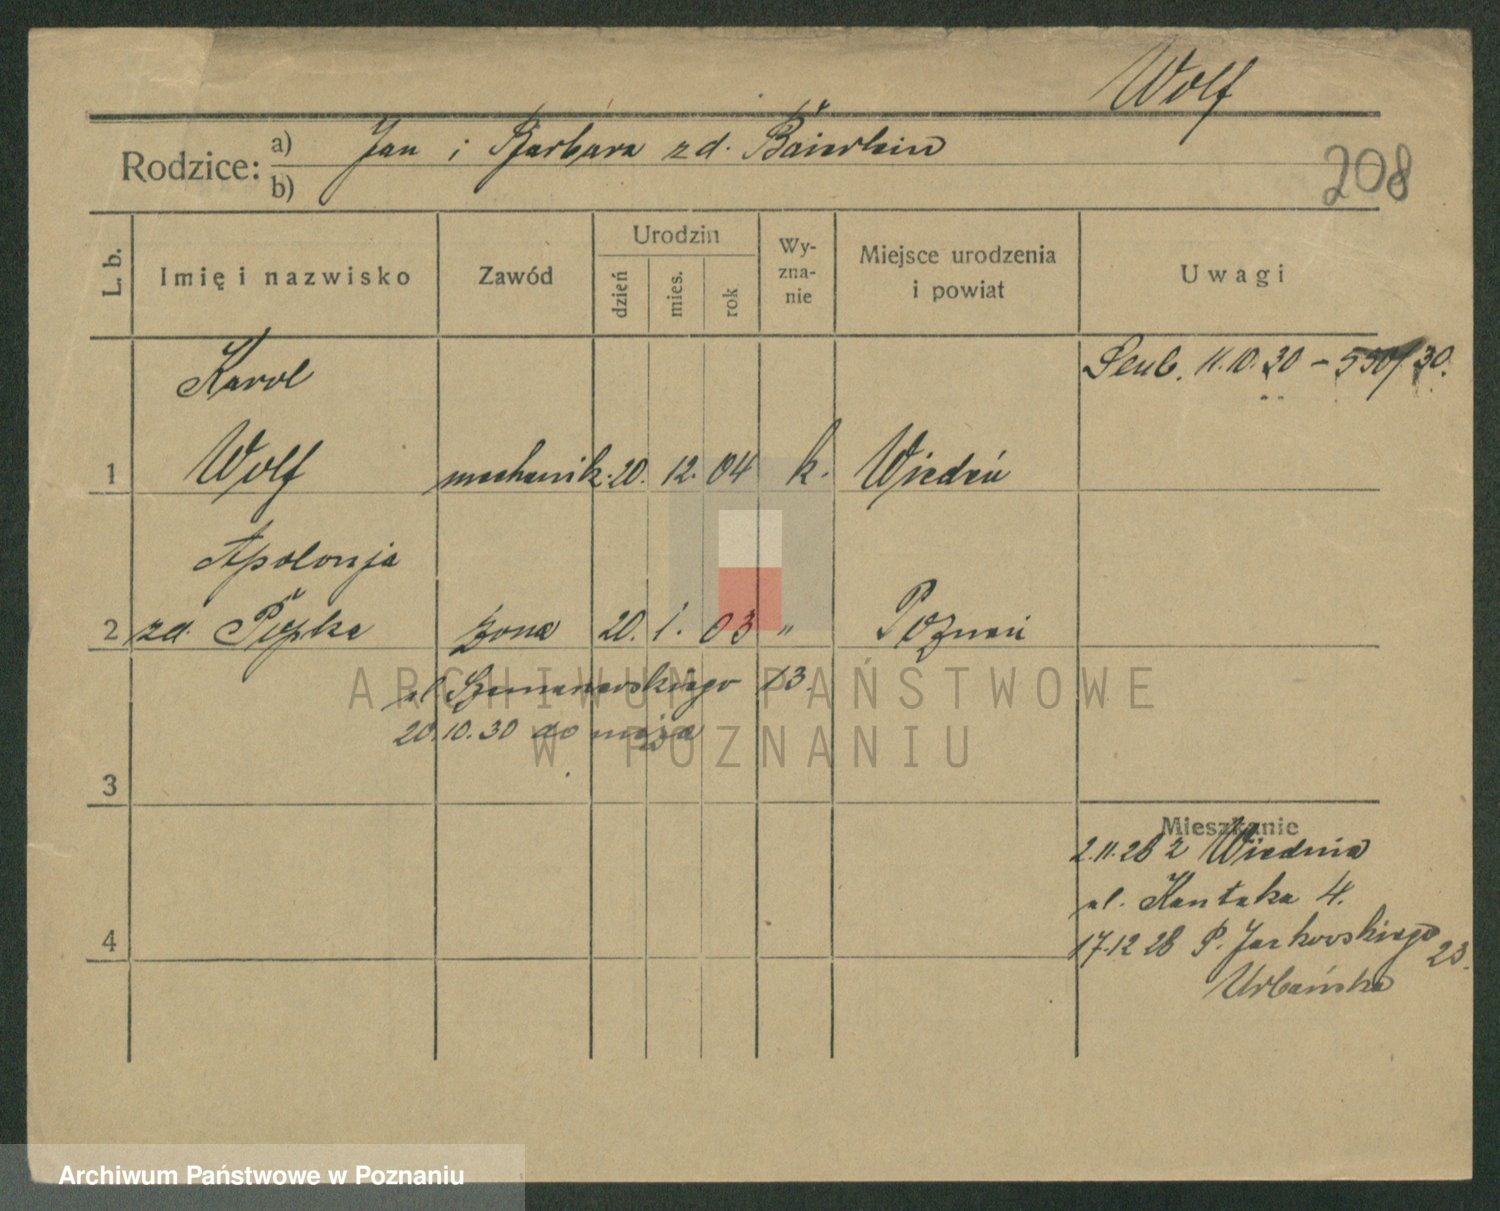 Wolf
Rodzice: a) Jan i Barbara zd. Baierlein
b)
208
L. b. Imię i nazwisko Zawód Urodzin dzień mies. rok Wy-zna-nie Miejsce urodzenia i powiat Uwagi
Karol
Ślub. 11.10.30 – 550/30.
1 Wolf mechanik. 20. 12. 04 k. Wiedeń
Apolonja
2 zd. żona 20. 1. 03 " Poznań
ul. 13.
20.10.30 do męża
ARCHIWUM PAŃSTWOWE
W POZNANIU
3
Mieszkanie
2.11.28 z Wiednia
ul. Kantaka 4.
4
17.12.28 P. 23.
Urbańska
Archiwum Państwowe w Poznaniu